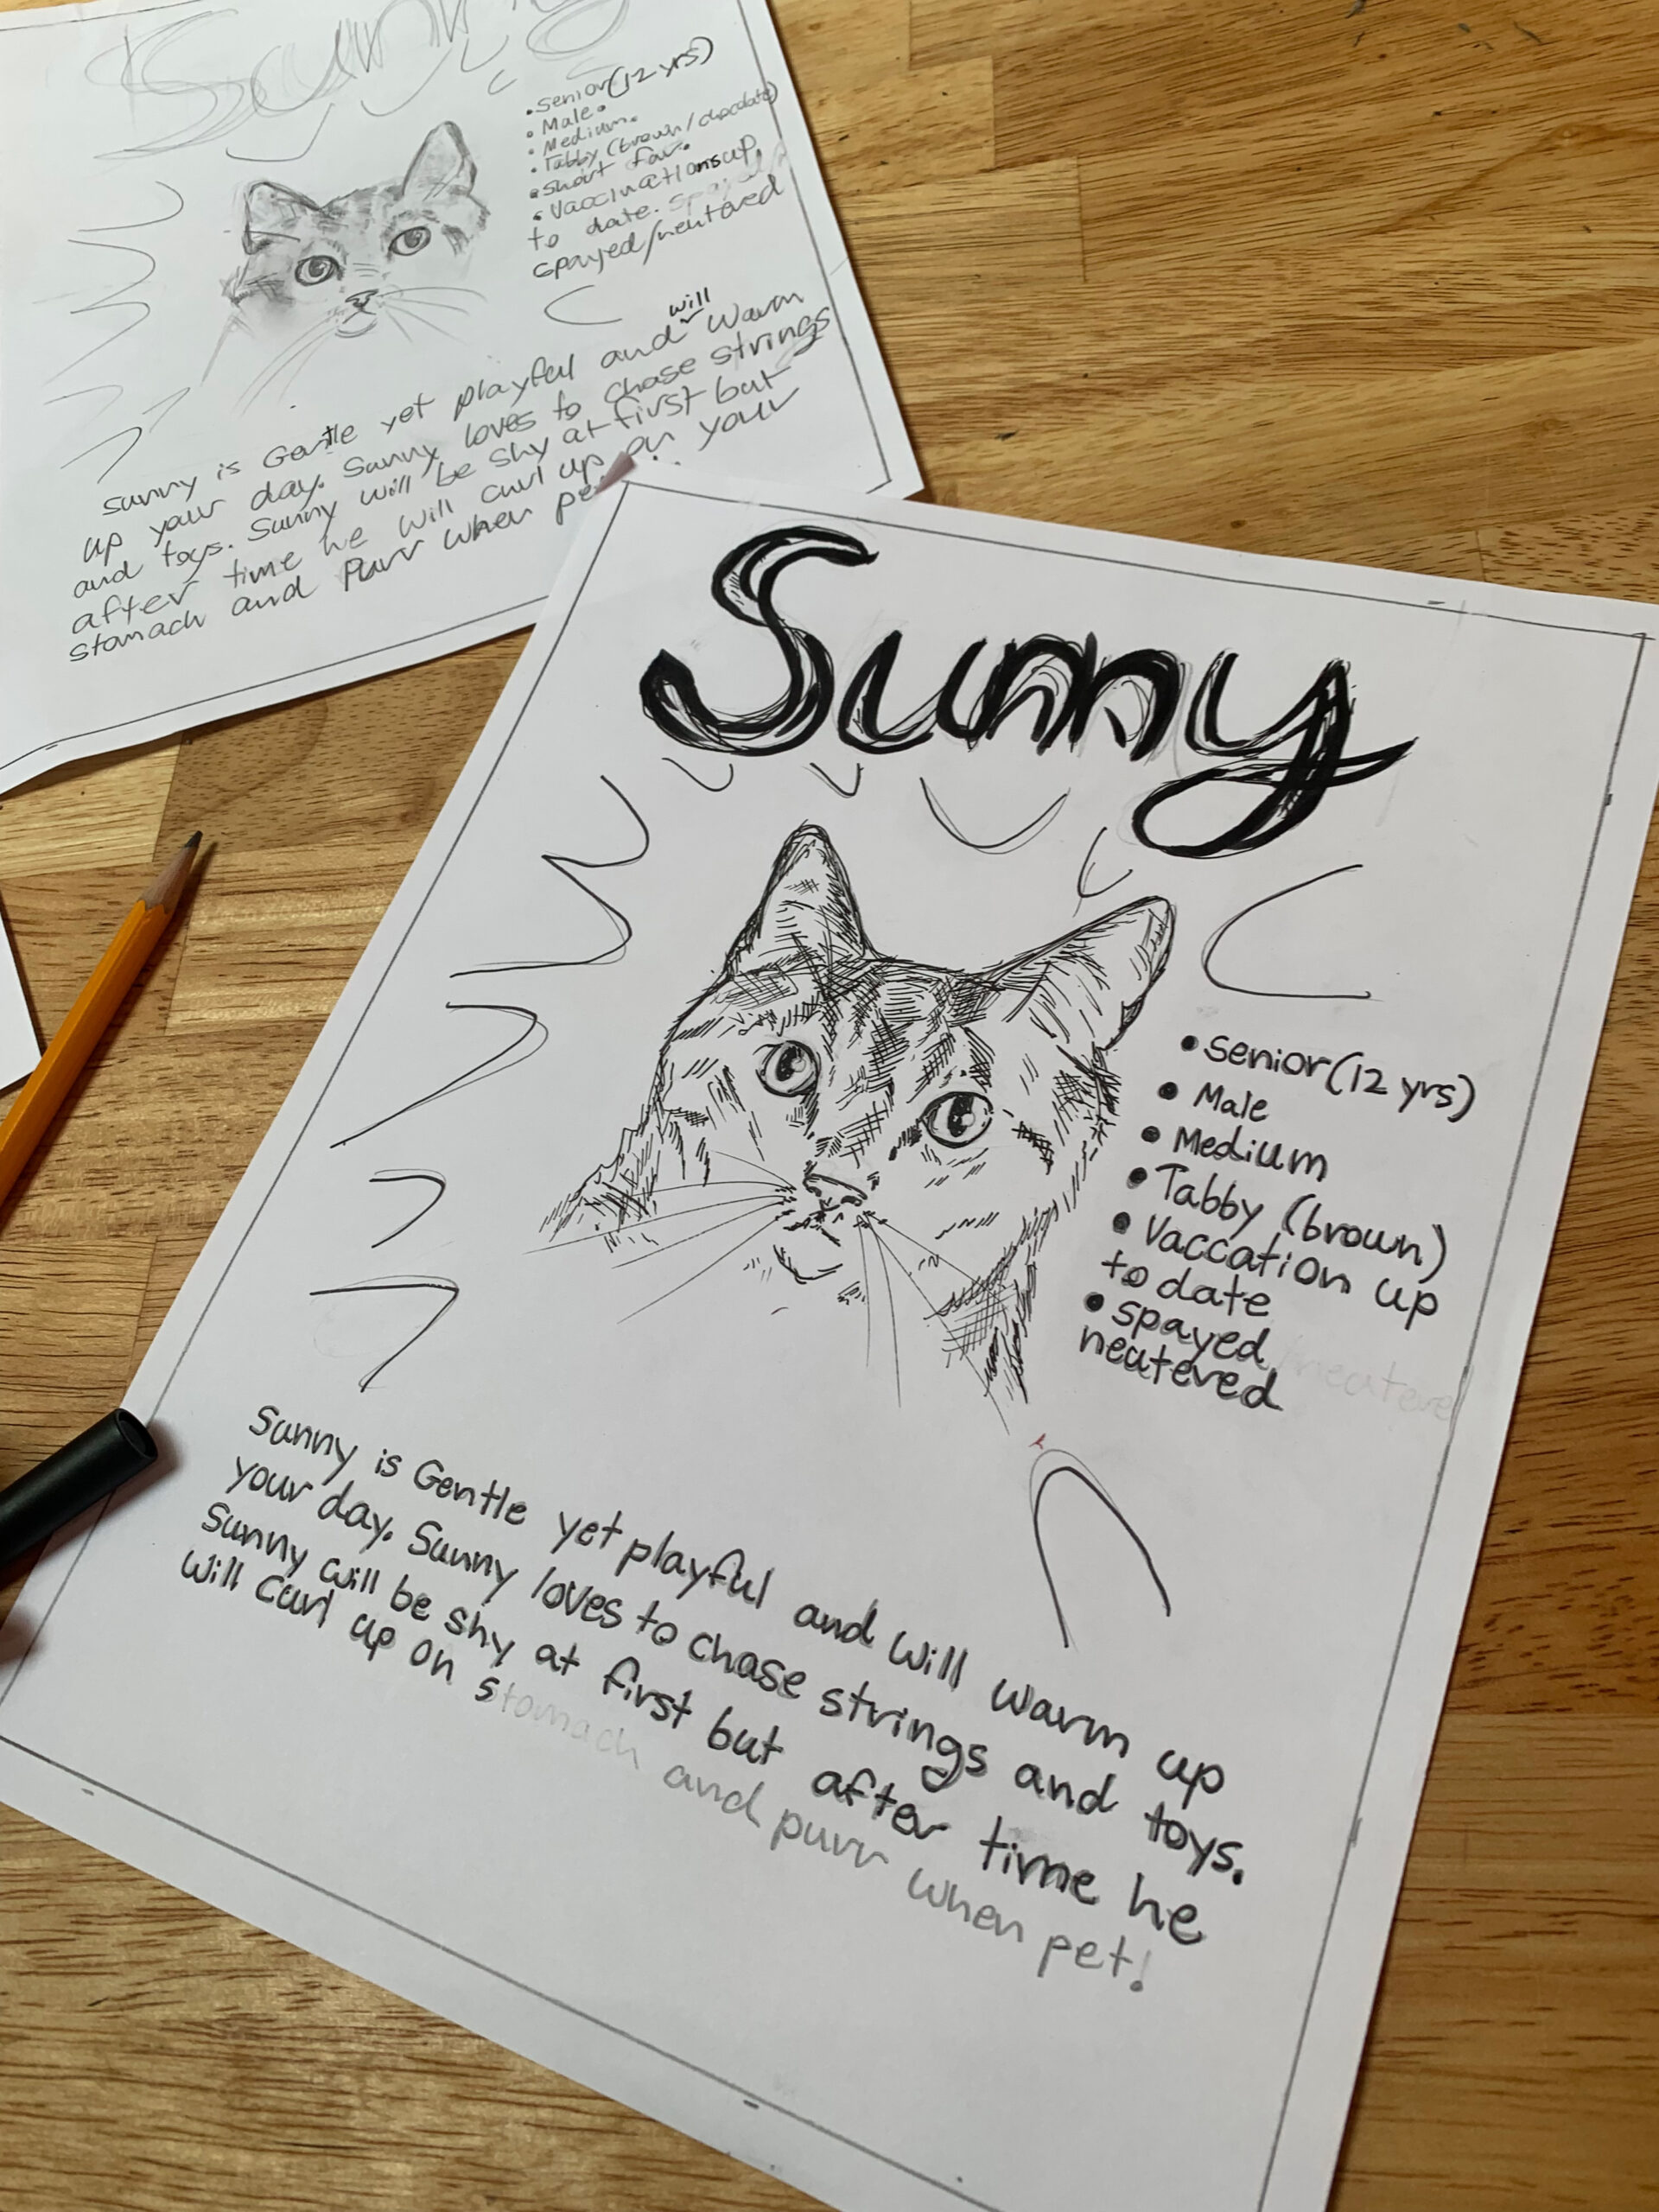 Sunny
• Senior (12 yrs)
• Male.
• Medium.
• Tabby (brown/chocolate)
• Short fur.
• Vaccinations up
to date. spayed/
spayed/neutered
will
Sunny is Gentle yet playful and Warm
up your day. Sunny loves to chase strings
and toys. Sunny will be shy at first but
after time he will curl up on your
stomach and purr when pe
Sunny
• Senior (12 yrs)
• Male
• Medium
• Tabby (brown)
• Vaccation up
to date
• spayed /neutere
neutered
Sunny is Gentle yet playful and will warm up
your day. Sunny loves to chase strings and toys.
Sunny will be shy at first but after time he
will curl up on stomach and purr when pet!